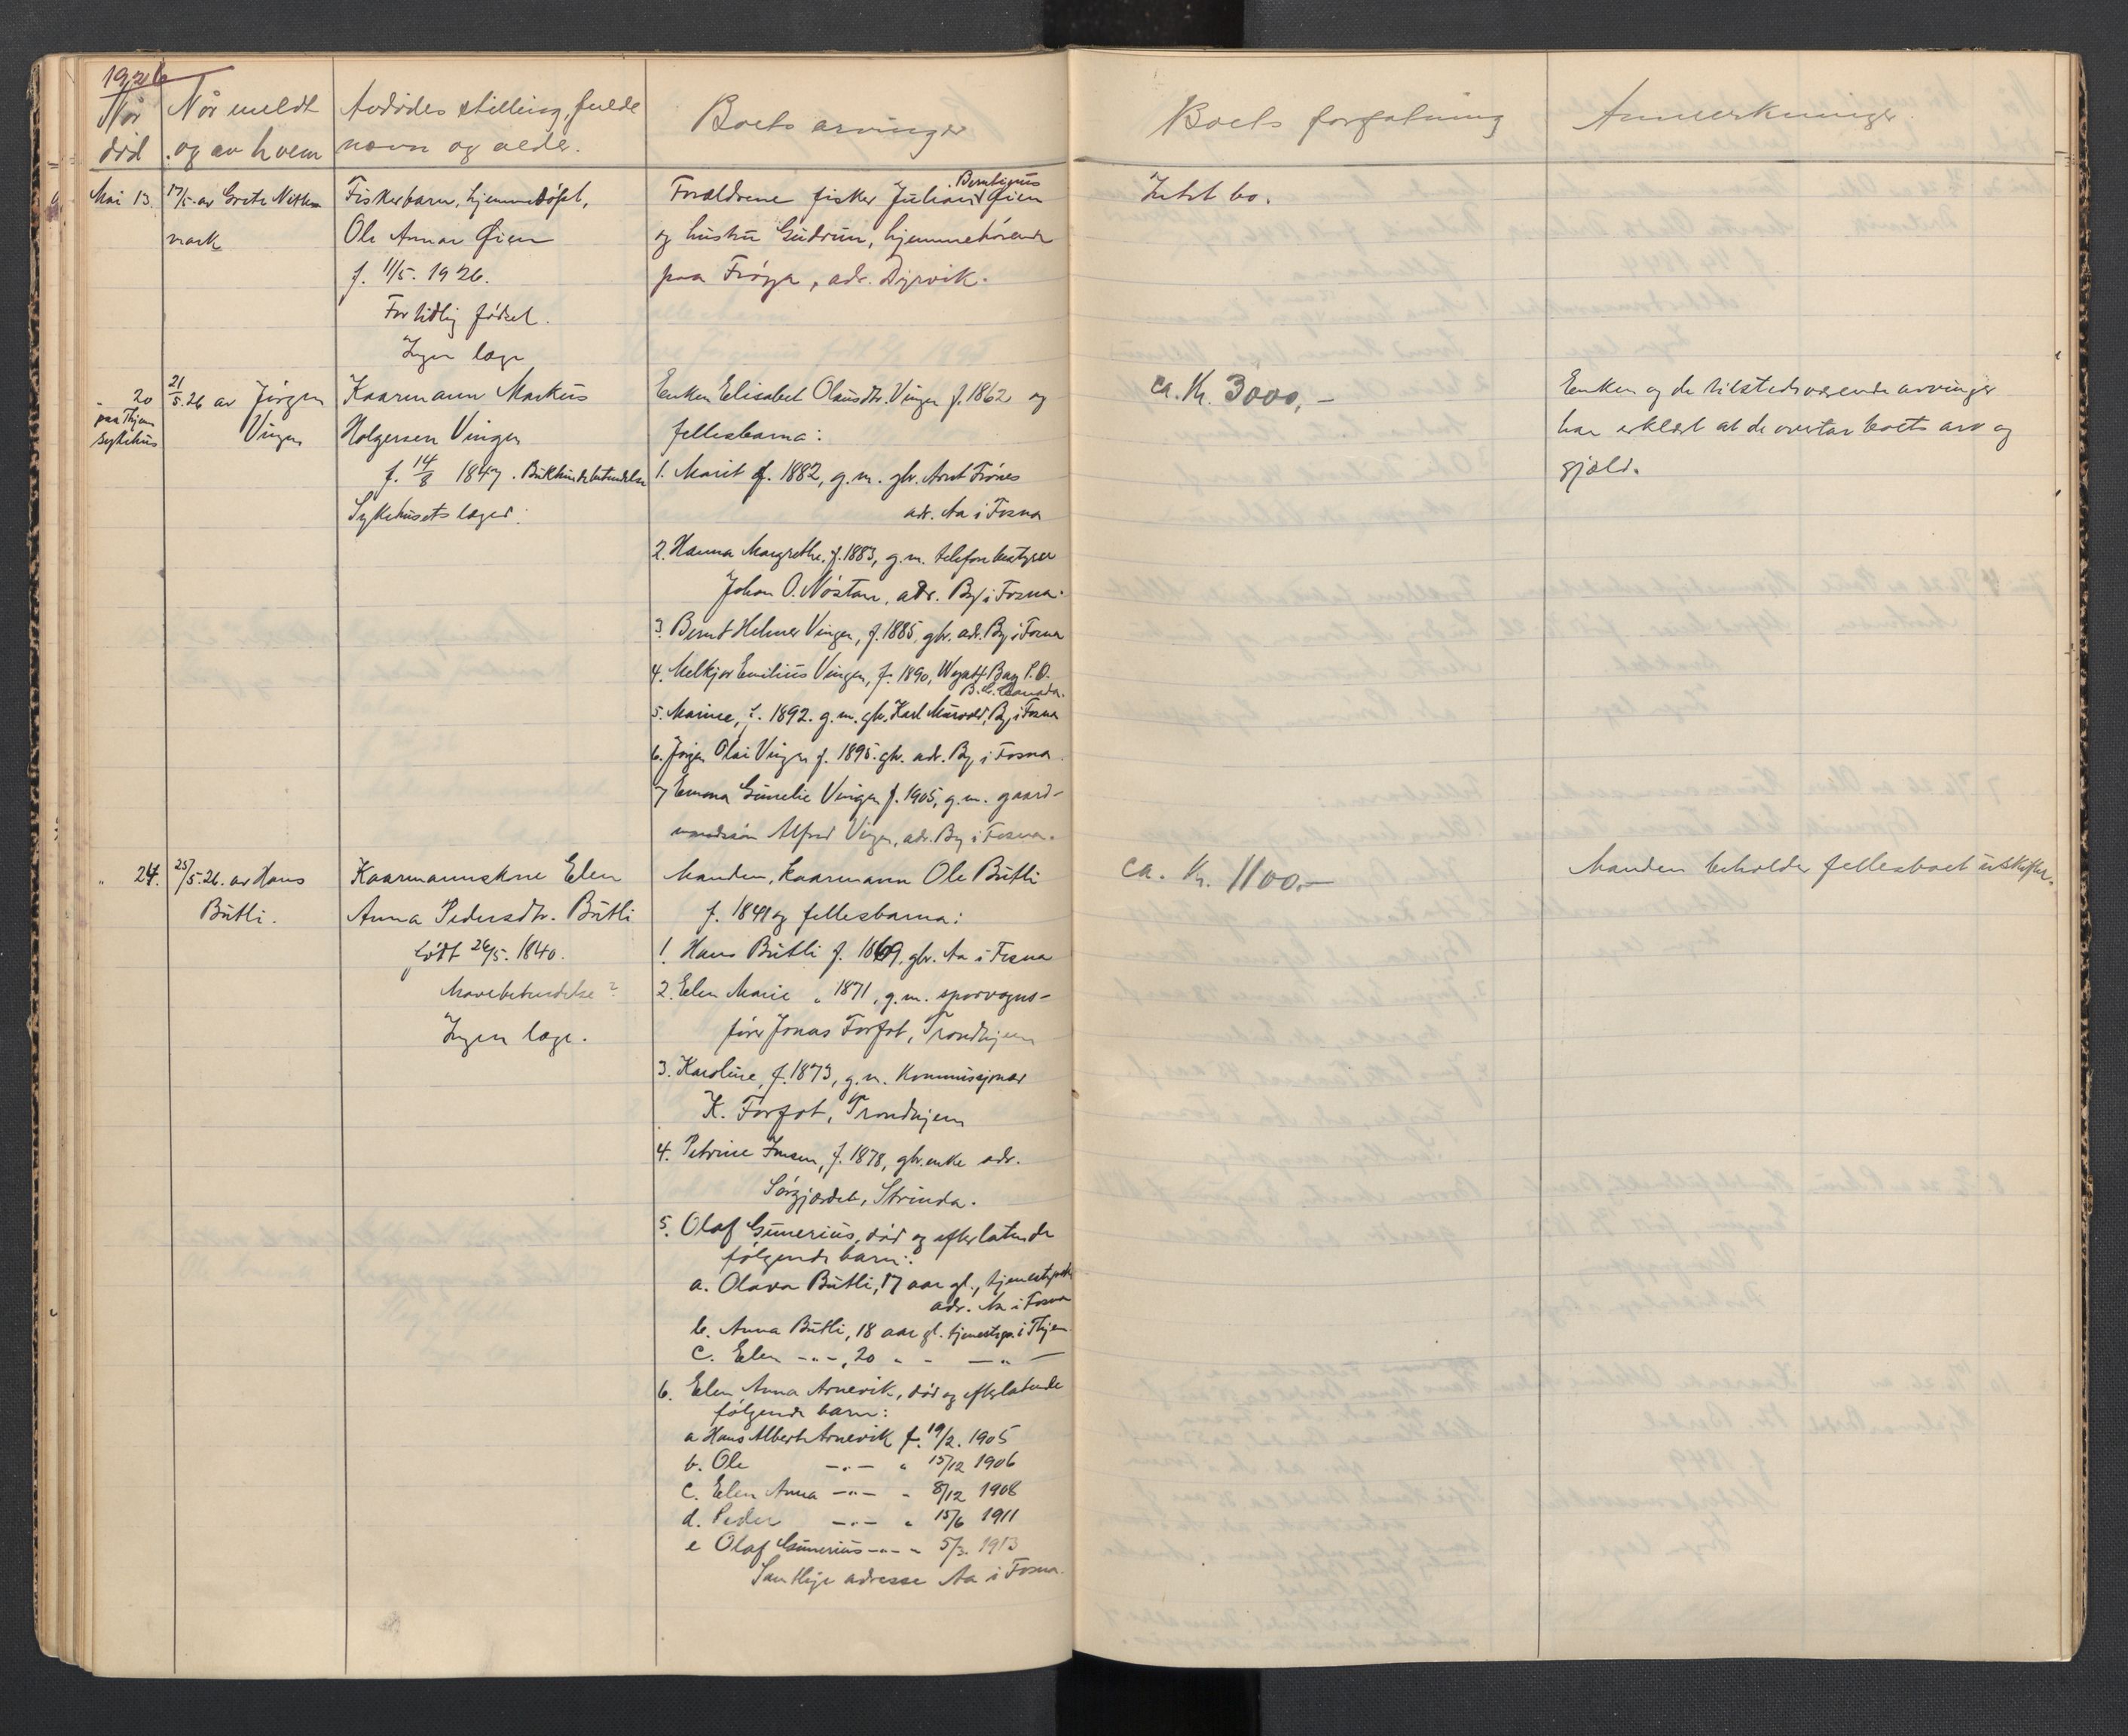 1926
Når
død
Når meldt
og av hvem
Avdødes stilling, fulde
navn og alder.
Boets arvinger
Boets forfatning
Anmerkninger.
Mai 13.
17/5 av Grete
mark
Fiskerbarn, hjemmedøpt,
Ole Arnar Øien
f. 11/5. 1926.
For tidlig fødsel.
Ingen læge
Forældrene fisker Julian Berntinus Øien
og hustru Gudrun, hjemmehørende
paa Frøya, adr. Dyrvik.
Intet bo.
" 20
paa Thjem
sykehus
21/5.26 av Jørgen
Vingen
Kaarmann Markus
Holgersen Vingen
f. 14/8 1847. Bukhindebetændelse
Sykehusets læger.
Enken Elisabet Olausdtr. Vingen f. 1862 og
fellesbarna:
1. Marit f. 1882, g.m. gbr. Arnt Frönes
adr. Aa i Fosna
2. Hanna Margrethe. f. 1883, g.m. telefonbestyrer
Johan O. Nöstan, adr. By i Fosna.
3. Bernt Helmer Vingen, f. 1885, gbr. adr. By i Fosna
4. Melkjor Emilius Vingen, f. 1890, Wyatt Bay P.O.
B.C. Canada.
5. Marine, f. 1892. g.m. gbr. Karl Murvold, By i Fosna
6. Jörgen Olai Vingen f. 1895. gbr. adr. By i Fosna.
7 Emma Gunelie Vingen f. 1905, g.m. gaard-
mandssön Alfred Vingen, adr. By i Fosna.
ca. Kr. 3000,-
Enken og de tilstedeværende arvinger
har erklært at de overtar boets arv og
gjæld.
" 24.
25/5.26. av Hans
Butli.
Kaarmannskone Elen
Anna Pedersdtr. Butli
født 26/5. 1840.
Mavebetændelse?
Ingen læge.
Manden, kaarmann Ole Butli
f. 1841 og fellesbarna:
1. Hans Butli f. 1869, gbr. Aa i Fosna
2. Elen Marie " 1871, g.m. sporvogns-
fører Jonas Forfot, Trondhjem
3. Karoline, f. 1873, g.m. Kommissjonær
K. Forfot, Trondhjem
4. Petrine Jensen, f. 1878, gbr.enke adr.
Sørgjærdet, Strinda.
5. Olaf Gunerius, død og efterlatende
følgende barn:
a. Olava Butli, 17 aar gl., tjenestepike
adr. Aa i Fosna
b. Anna Butli, 18 aar gl. tjenestep. i Thjem
C. Elen -"-, 20 " - -"-
6. Elen Anna Arnevik, død og efterlatende
følgende barn:
a Hans Albert Arnevik f. 19/2. 1905
b. Ole -"- " 15/12 1906
C. Elen Anna -"- " 8/12 1908
d. Peder -"- " 15/6 1911
e Olaf Gunerius -"- " 5/3. 1913
Samtlige adresse Aa i Fosna.
ca. Kr. 1100,-
Manden beholder fellesboet uskiftet.